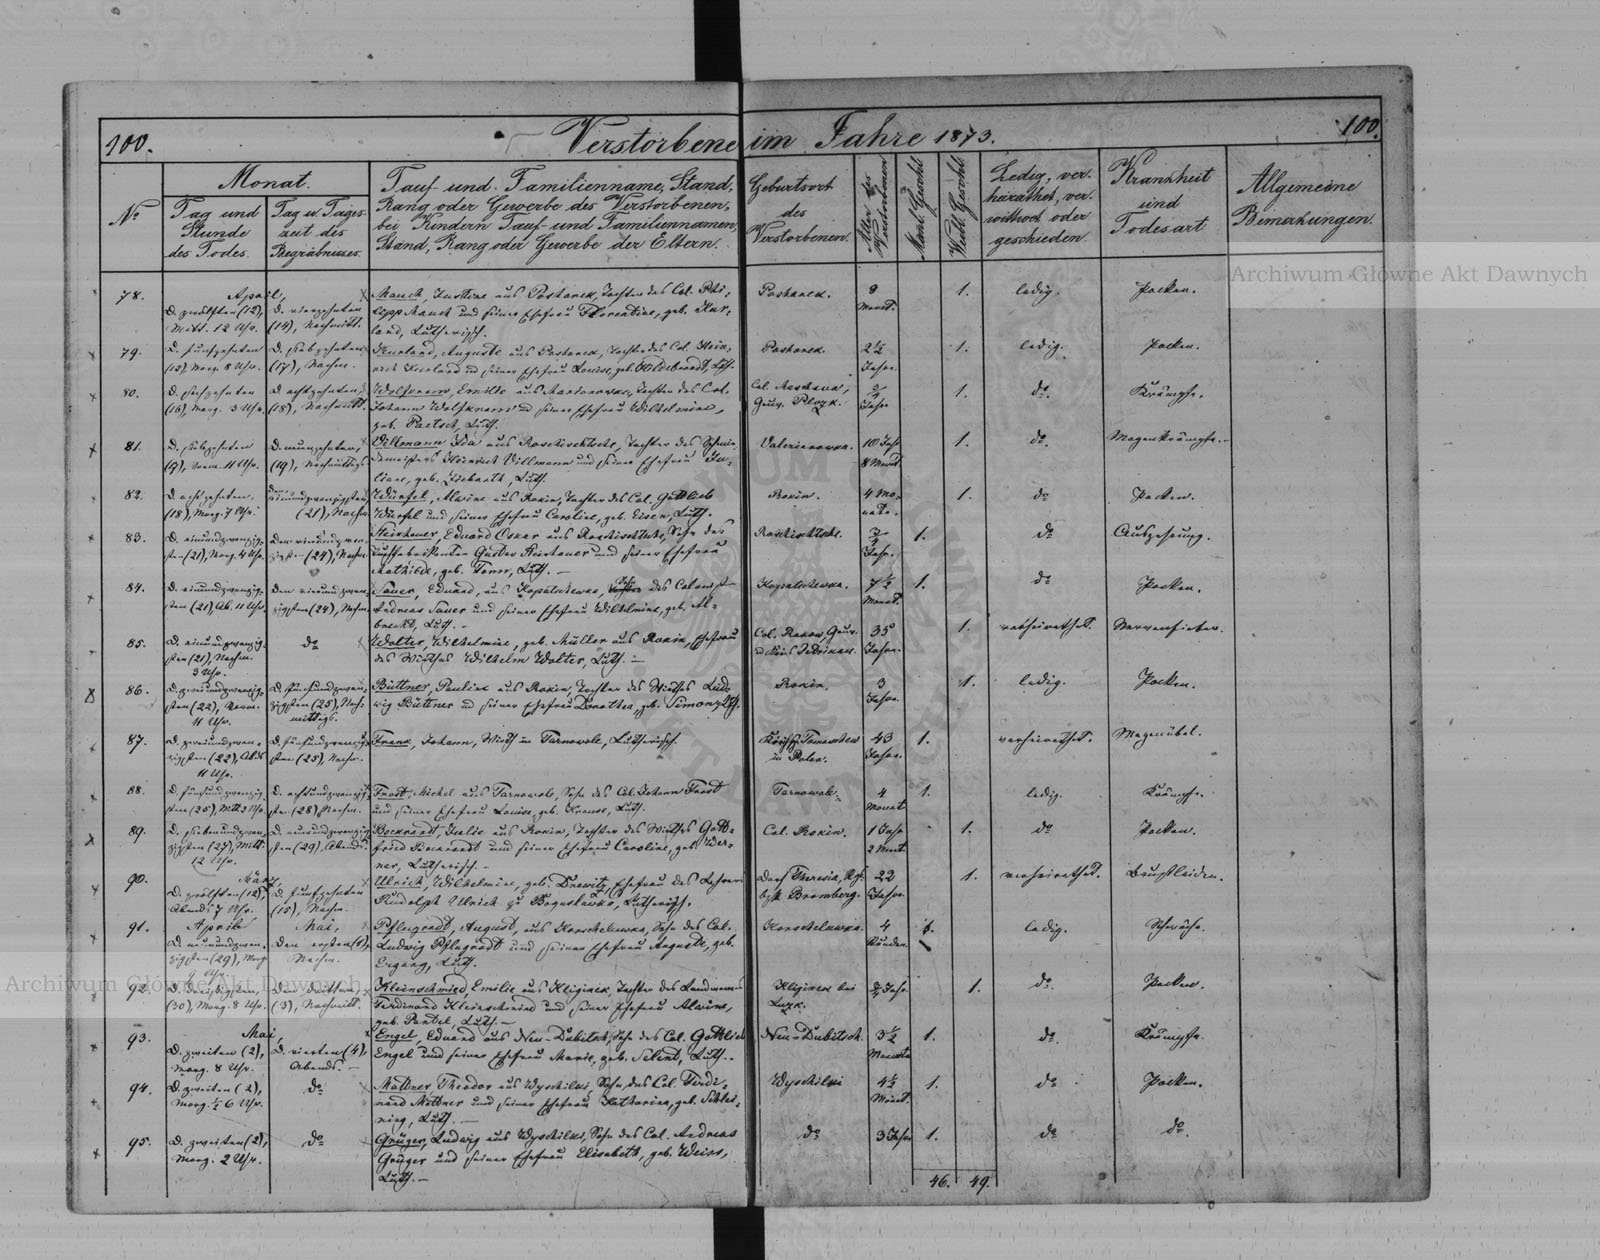 100.
Verstorbene im Jahre 1873.
100.
Monat.
№
Tag und
Stunde
des Todes.
Tag u. Tages-
zeit des
Begräbnisses.
Tauf- und Familienname, Stand,
Rang oder Gewerbe des Verstorbenen,
bei Kindern Tauf- und Familiennamen,
Stand, Rang oder Gewerbe der Eltern.
Geburtsort
des
Verstorbenen.
Alter des
Verstorbenen
Männl. Geschl.
Weibl. Geschl.
Ledig, ver-
heirathet, ver-
wittwet oder
geschieden
Krankheit
und
Todesart
Allgemeine
Bemerkungen.
Archiwum Główne Akt Dawnych
78.
April,
D. zwölften (12),
Mitt. 12 Uhr.
D. vierzehnten
(14), Nachmitt.
Mauch, Justine aus Postarek, Tochter des Col. Phi-
lipp Mauch und seiner Ehefrau Florentine, geb. Kur-
land, Lutherisch.
Monat.
1.
ledig.
Pocken.
79.
D. fünfzehnten
(15) Morg. 8 Uhr.
D. siebzehnten
(17), Nachm.
Kurland, Auguste aus Postarek, Tochter des Col. Hein-
rich Kurland und seiner Ehefrau Louise, geb. Hildebrandt, Luth.
2½
Jahr.
1.
ledig.
Pocken.
80.
D. sechzehnten
(16), Morg. 3 Uhr.
D. achtzehnten
(18), Nachmitt.
Emilie aus Marianowka, Tochter des Col.
Johann und seiner Ehefrau Wilhelmine,
geb. Paetsch, Luth.
Gouv. Plozk.
Jahr
1.
do.
Krämpfe.
81.
D. siebzehnten
(17), Vorm. 11 Uhr.
D. neunzehnten,
(19), Nachmittags
Villmann Ida aus Roschischtsche, Tochter des Schmie-
demeisters Heinrich Villmann und seiner Ehefrau Ju-
liane, geb. Liebrecht, Luth.
Valerianowka.
10 Jahr
8 Monat.
1.
do.
Magenkrämpfe.
82.
D. achtzehnten,
(18), Morg. 7 Uhr.
(21), Nachm.
Würfel, Alwine aus Rokin, Tochter des Col. Gottlieb
Würfel und seiner Ehefrau Caroline, geb. Eisen, Luth.
Rokin.
4 Mo-
nate.
1.
do
Pocken.
83.
D. einundzwanzig-
sten (21), Morg. 4 Uhr.
Den vierundzwan-
zigsten (24), Nachm.
Steinhauer, Eduard Oskar aus Roschischtsche, Sohn des
Tuchfabrikanten Gustav Steinhauer und seiner Ehefrau
Mathilde, geb. Tonn, Luth. —
Roschischtsche.
Jahr.
1.
do
Auszehrung.
84.
D. einundzwanzig-
sten (21), Ab. 11 Uhr.
Den vierundzwan-
zigsten (24), Nachm.
Sauer, Eduard, aus Kopatschewka, Sohn des Colonist
Andreas Sauer und seiner Ehefrau Wilhelmine, geb. Al-
brecht, Luth. —
Kopatschewka.
7½
Monat.
1.
do
Pocken.
85.
D. einundzwanzig-
sten (21), Nachm.
3 Uhr.
do
Wolter, Wilhelmine, geb. Müller aus Rokin, Ehefrau
des Wirthes Wilhelm Wolter, Luth. —
35
Jahr.
1.
verheirathet.
Nervenfieber.
86.
D. zweiundzwanzig-
sten (22), Vorm.
11 Uhr.
D. fünfundzwan-
zigsten (25), Nach-
mittags.
Büttner, Pauline aus Rokin, Tochter des Wirthes Lud-
wig Büttner und seiner Ehefrau Dorothea, geb.
Rokin.
3
Jahr.
1.
ledig.
Pocken.
87.
D. zweiundzwan-
zigsten (22), Abds.
11 Uhr.
D. fünfundzwanzig-
sten (25), Nachm.
Frank, Johann, Wirth in Tarnowole, Lutherisch.
in Polen.
43
Jahr.
1.
verheirathet.
Magenübel.
88.
D. fünfundzwanzig-
sten (25), Mitt.
D. achtundzwanzig-
sten (28), Nachm.
Frost, Michel aus Tarnowole, Sohn des Col. Johann Frost
und seiner Ehefrau Louise, geb. Krause, Luth.
Tarnowole
4
Monat
1.
ledig.
Krämpfe.
89.
D. siebenundzwan-
zigsten (27), Mitt.
12 Uhr.
D. neunundzwanzig-
sten (29), Abends.
Bockrandt, Julie aus Rokin, Tochter des Wirthes Gott-
fried Bockrandt und seiner Ehefrau Caroline, geb. Wer-
ner, Lutherisch. —
Col. Rokin.
1 Jahr
2 Monat.
1.
do
Pocken.
90.
März,
D. zwölften (12),
Abends 7 Uhr.
D. fünfzehnten
(15), Nachm.
Ulrich, Wilhelmine, geb. Drewitz, Ehefrau des Lehrers
Rudolph Ullrich zu Boguslawka, Lutherisch.
Dorf Theresia, Rgs.
bzk. Bromberg.
22
Jahr.
1.
verheirathet.
Brustleiden.
91.
April
D. neunundzwan-
zigsten (29), Morg.
Uhr.
Mai,
Den ersten (1),
Nachm.
Pflugradt, August, aus Korscheluwka, Sohn des Col.
Ludwig Pflugradt und seiner Ehefrau Auguste, geb.
Luth.
Korscheluwka.
4
Stunden.
1.
ledig.
Schwäche.
Archiwum Główne Akt Dawnych
92.
D. dreißigsten,
(30), Morg. 8 Uhr.
Den dritten,
(3), Nachmitt.
Kleinschmied Emilie aus Kliginek, Tochter des Landmanns
Ferdinand Kleinschmied und seiner Ehefrau Alwine,
geb. Pantel, Luth. —
Kliginek bei
Luzk.
Jahr.
1.
do.
Pocken.
93.
Mai,
D. zweiten (2),
Morg. 8 Uhr.
D. vierten (4),
Abends. —
Engel, Eduard aus Neu-Dubitsch, Sohn des Col. Gottlieb
Engel und seiner Ehefrau Marie, geb. Selent, Luth. —
Neu-Dubitsch.
3½
Monate
1.
do.
Krämpfe.
94.
D. zweiten (2),
Morg. ½ 6 Uhr.
do
Mattner Theodor aus Wyschilki, Sohn des Col. Ferdi-
nand Mattner und seiner Ehefrau Katharina, geb.
Luth. —
Wyschilki
4½
Monat.
1.
do
Pocken.
95.
D. zweiten (2),
Morg. 2 Uhr.
do
Grüger, Ludwig aus Wyschilki, Sohn des Col. Andreas
Grüger und seiner Ehefrau Elisabeth, geb. Weiss,
Luth. —
do
3 Jahr
1.
do
do.
46.
49.